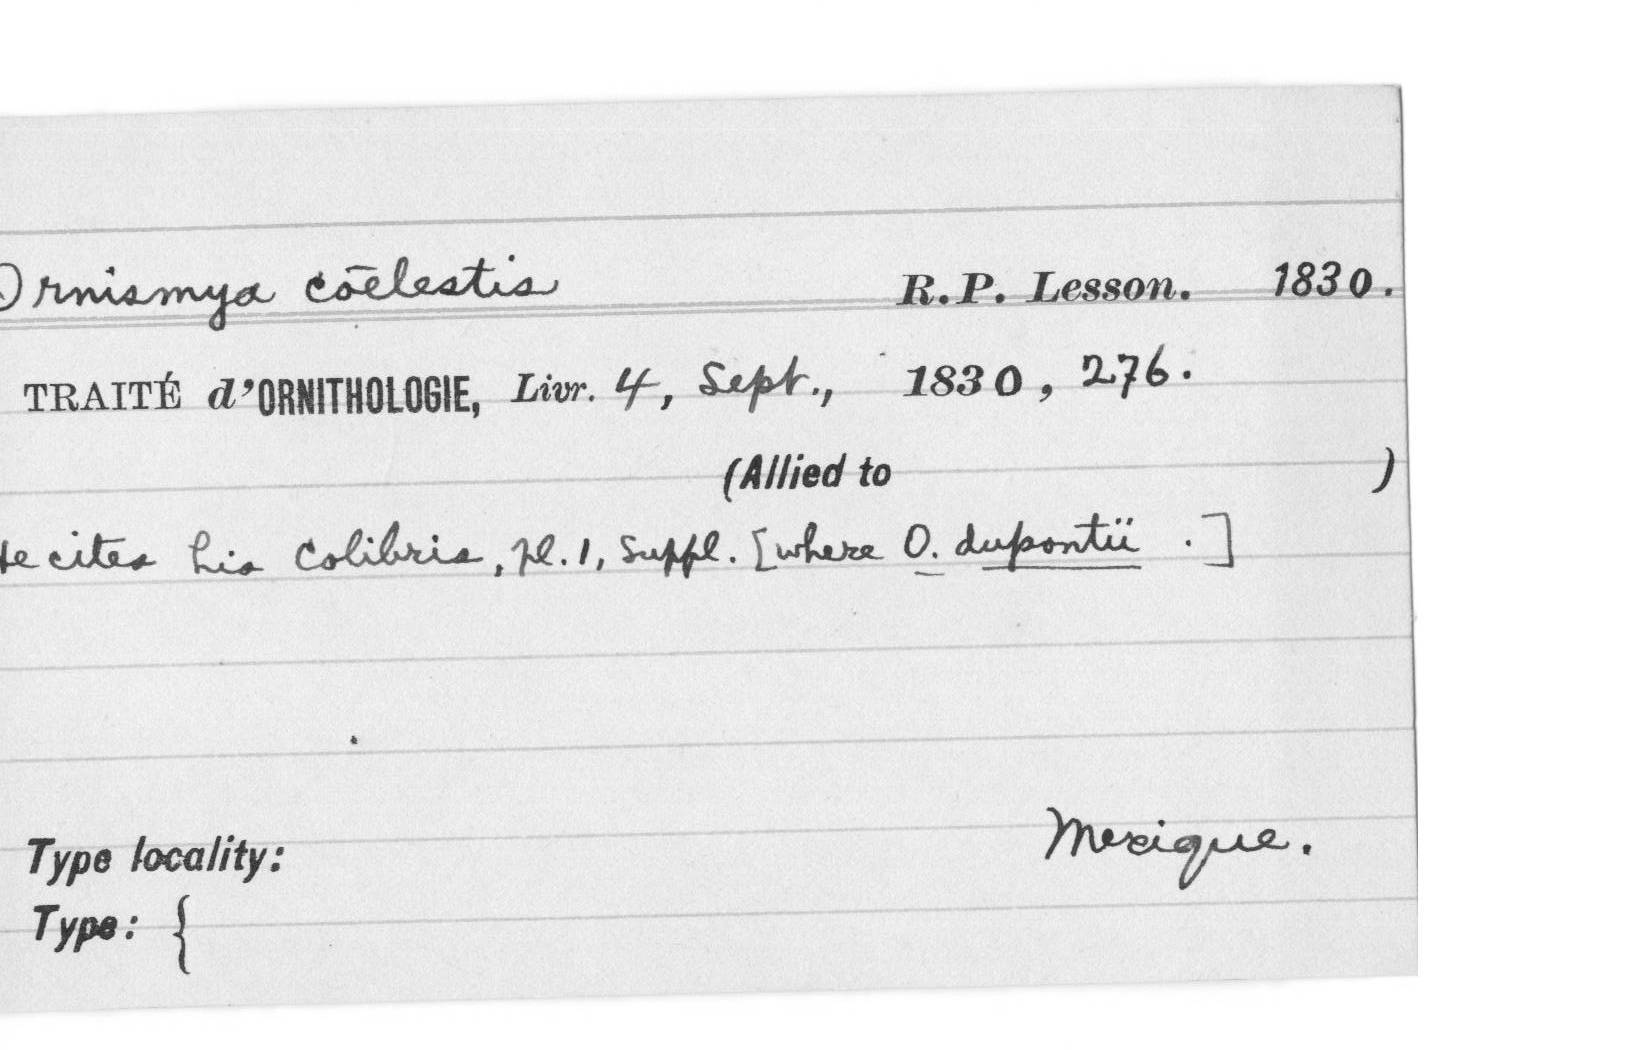 Ornismya cōelestis R.P. Lesson. 1830.
TRAITÉ d'ORNITHOLOGIE, Livr. 4, Sept., 1830, 276.
(Allied to )
He cites his Colibris, pl. 1, Suppl. [where O. dupontii .]
Type locality: Mexique.
Type: {